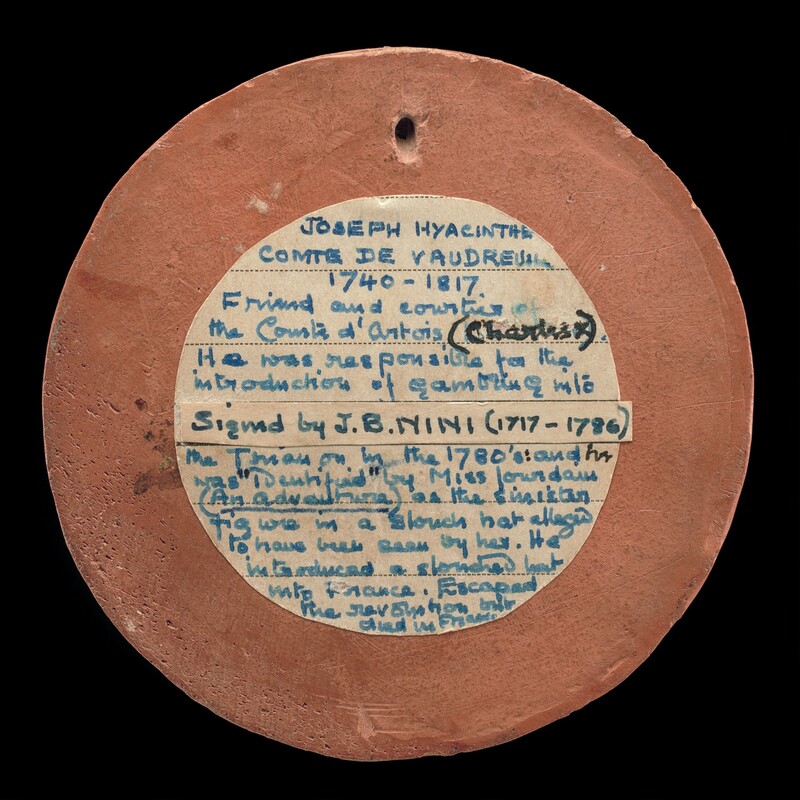 JOSEPH HYACINTHE
COMTE DE VAUDREUIL
1740 - 1817
Friend and courtier of
the Comte d'Artois (Charles X).
He was responsible for the
introduction of gambling into
Signed by J.B. NINI (1717 - 1786)
the Trianon in the 1780's: and he
was "Identified" by Miss Jourdain
(An adventure) as the sinister
figure in a slouch hat alleged
to have been seen by her. He
introduced a slouched hat
into France. Escaped
the revolution but
died in